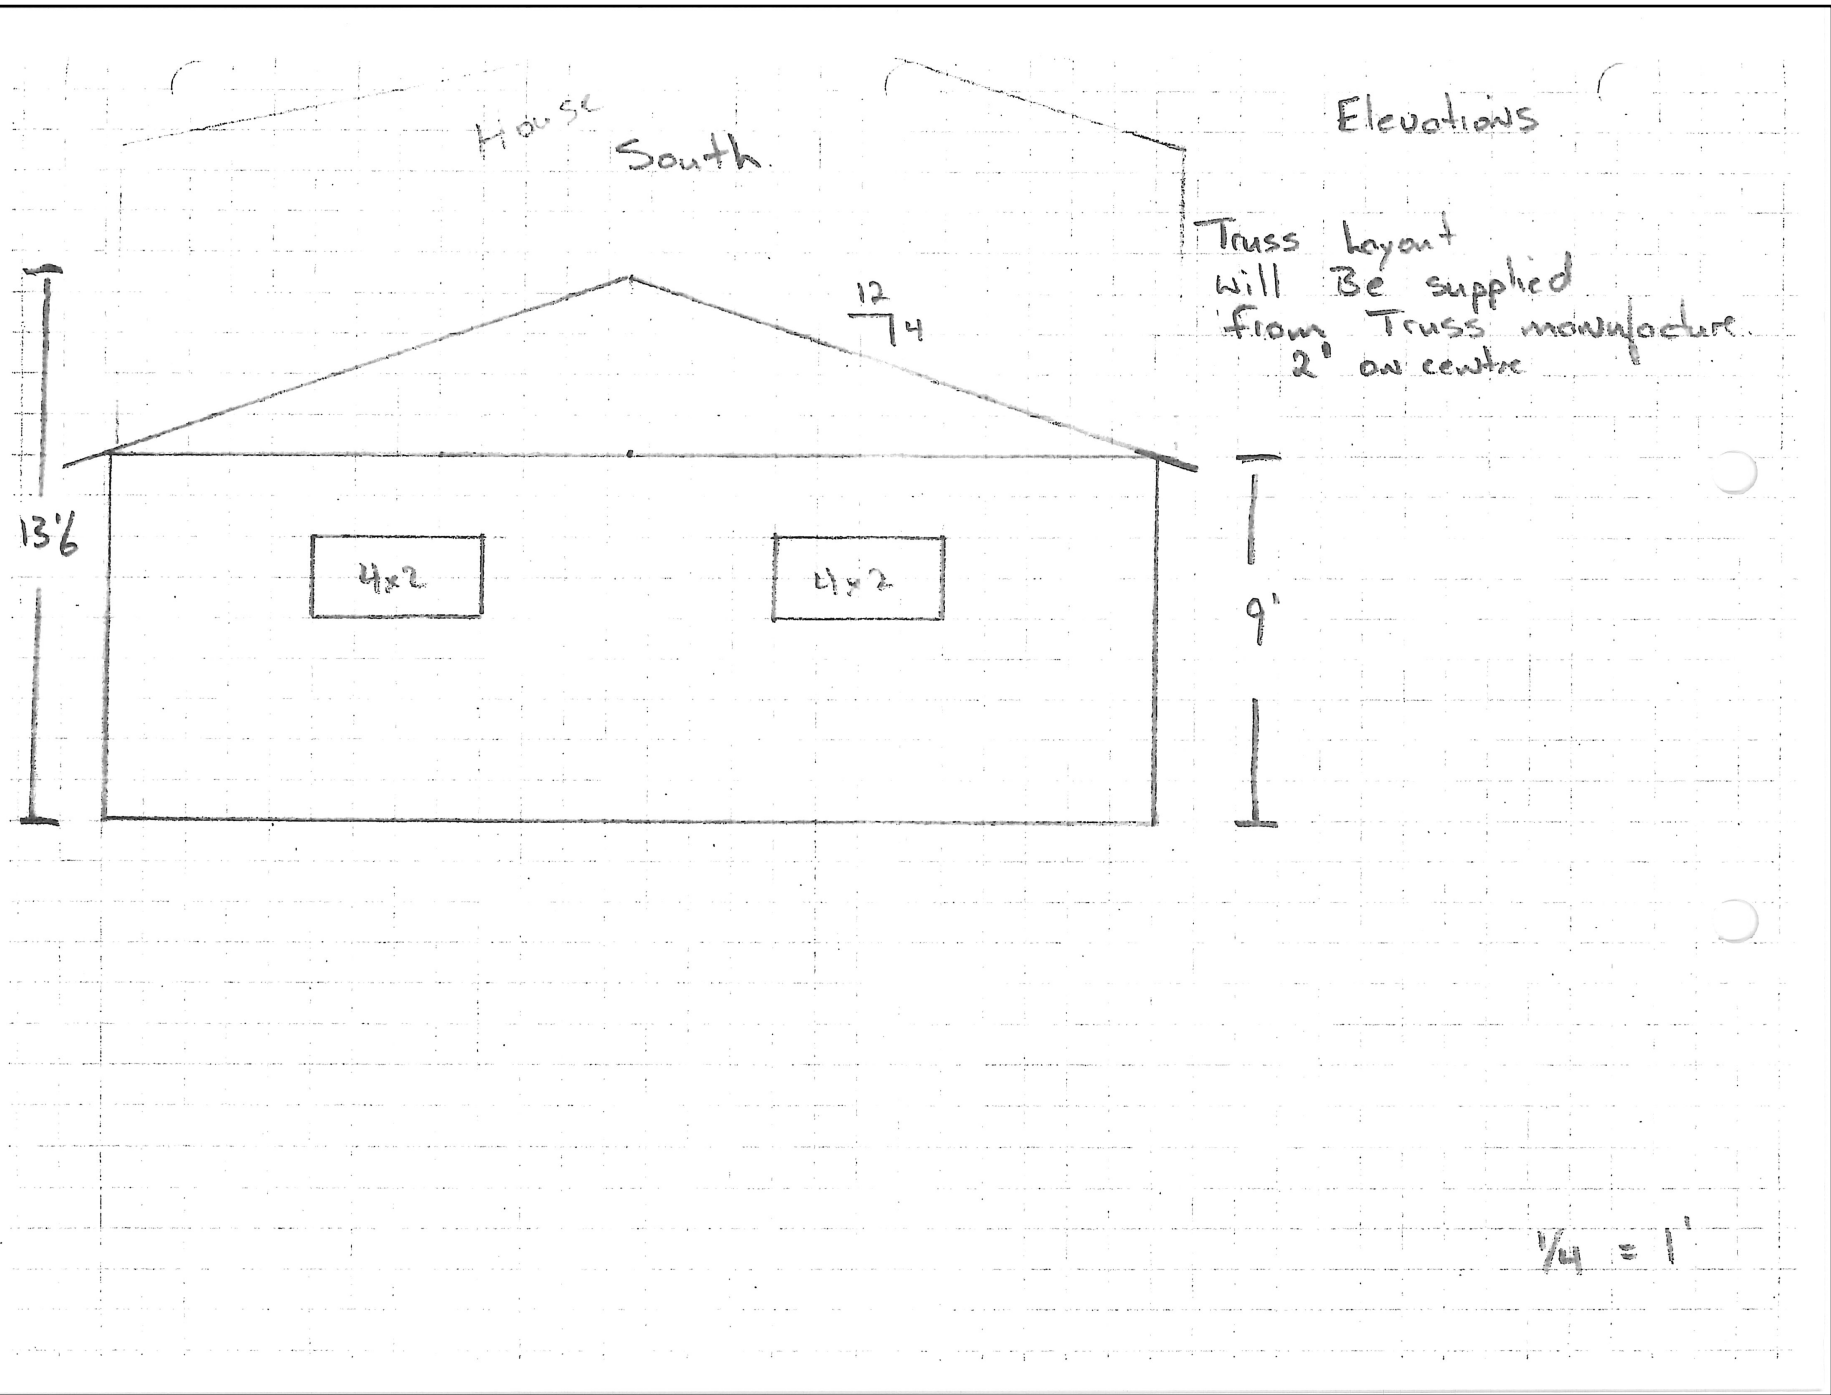 House
South
Elevations
Truss Layout
Will Be supplied
from Truss manufacture.
2' on centre
12
4
13'6
4x2
4x2
9'
1/4 = 1'